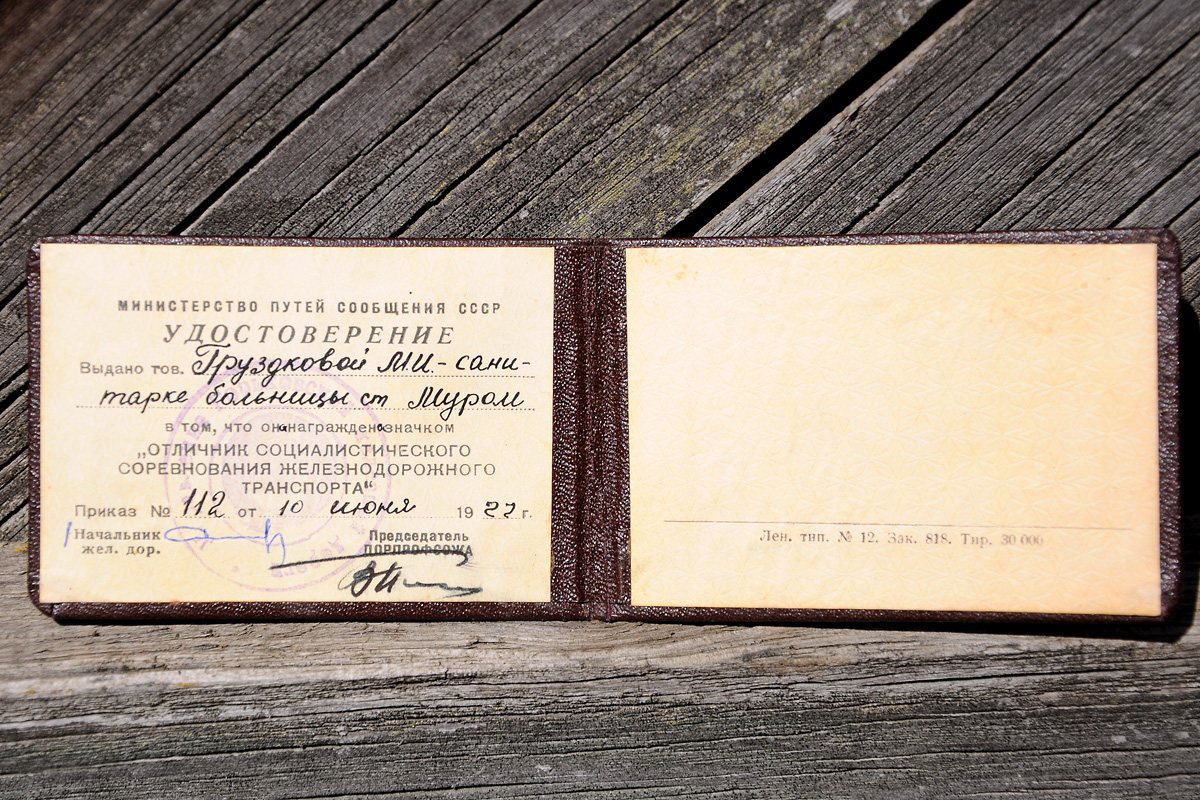 МИНИСТЕРСТВО ПУТЕЙ СООБЩЕНИЯ СССР
УДОСТОВЕРЕНИЕ
Выдано тов. Груздковой М.И. - сани-
тарке больницы ст Муром
в том, что она награждена значком
„ОТЛИЧНИК СОЦИАЛИСТИЧЕСКОГО
СОРЕВНОВАНИЯ ЖЕЛЕЗНОДОРОЖНОГО
ТРАНСПОРТА“
Приказ № 112 от 10 июня 19 г.
Начальник
жел. дор.
Председатель
ДОРПРОФСОЖА
Лен. тип. № 12. Зак. 818. Тир. 30 000